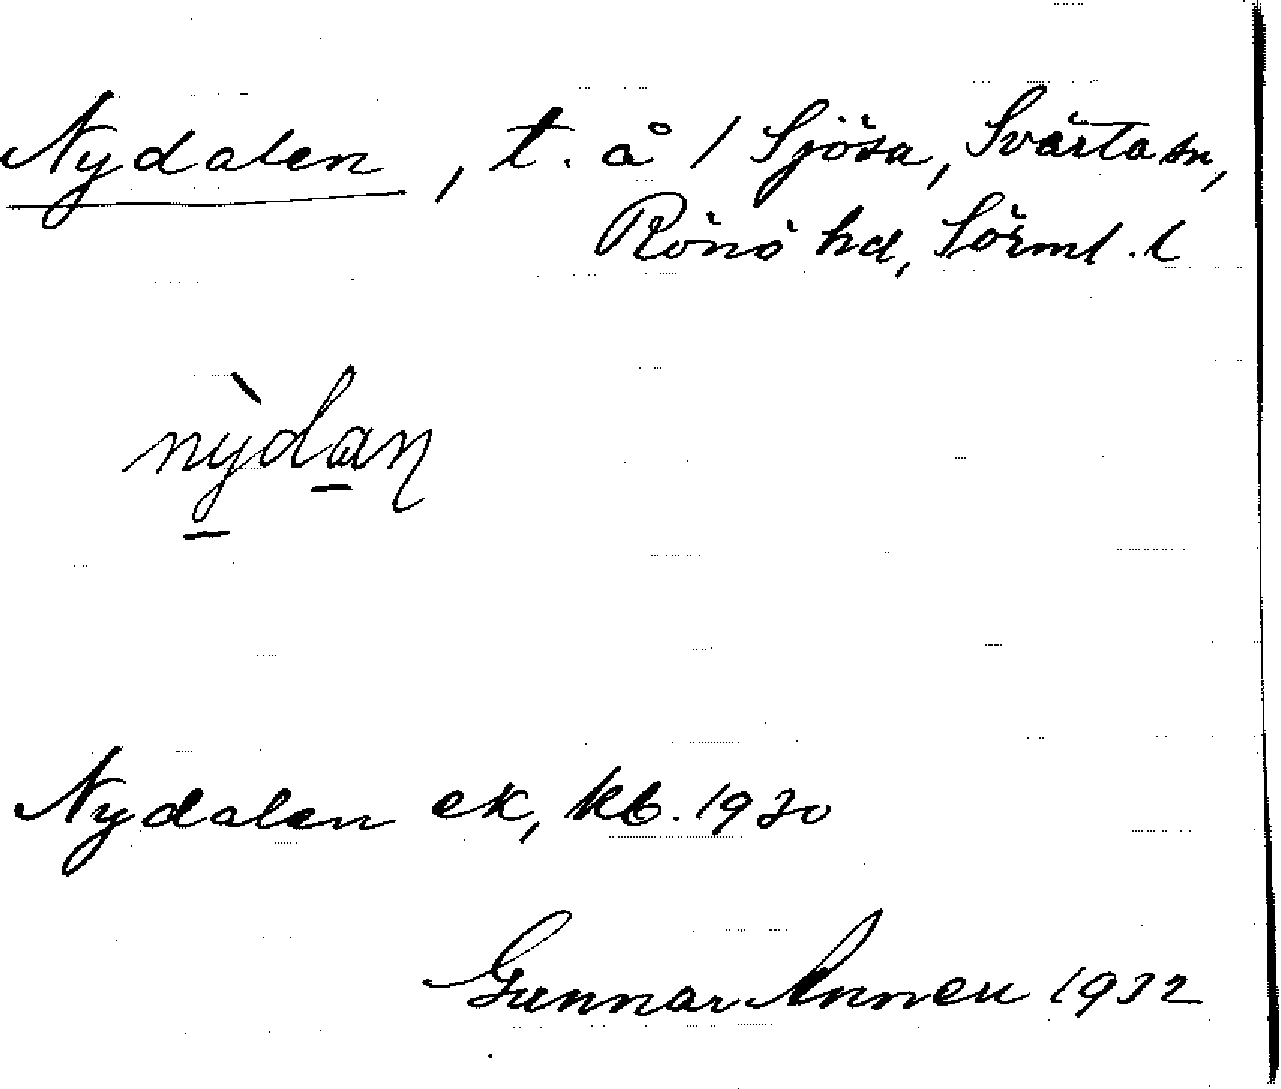 Nydalen, t. å 1 Sjösa, Svärta sn,
Rönö hd, Sörml. l
nỳdaɳ
Nydalen ek, kb. 1930
Gunnar Annell 1932